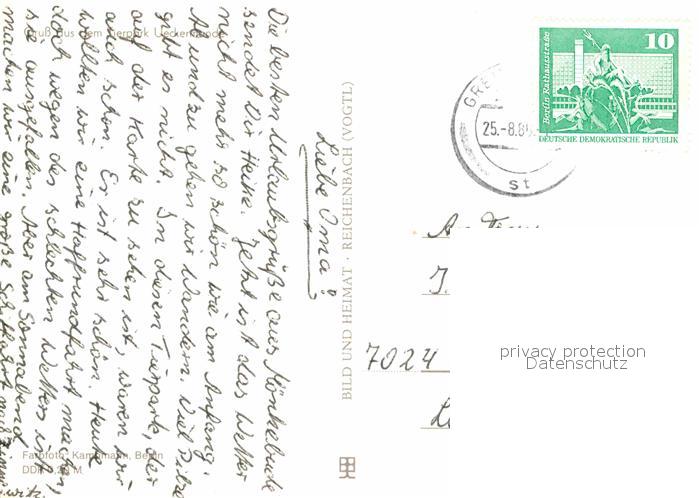 Gruß aus dem Tierpark Ueckermünde
Liebe Oma!
Die besten Urlaubsgrüße aus Mönkebude
sendet Dir Heike. Jetzt ist das Wetter
nicht mehr so schön wie am Anfang.
Ab und zu gehen wir Wandern. Viel Pilze
gibt es nicht. In diesem Tierpark, der
auf der Karte zu sehen ist, waren wir
auch schon. Er ist sehr schön. Heute
wollten wir eine Haffrundfahrt machen,
doch wegen des schlechten Wetters ist
sie ausgefallen. Aber am Sonnabend
machen wir eine große Schiffahrt nach
Farbfoto: Kampmann, Berlin
DDR 0,20 M
BILD UND HEIMAT · REICHENBACH (VOGTL)
10
Berlin Rathausstraße
DEUTSCHE DEMOKRATISCHE REPUBLIK
25.-8.8
st
7024
privacy protection
Datenschutz